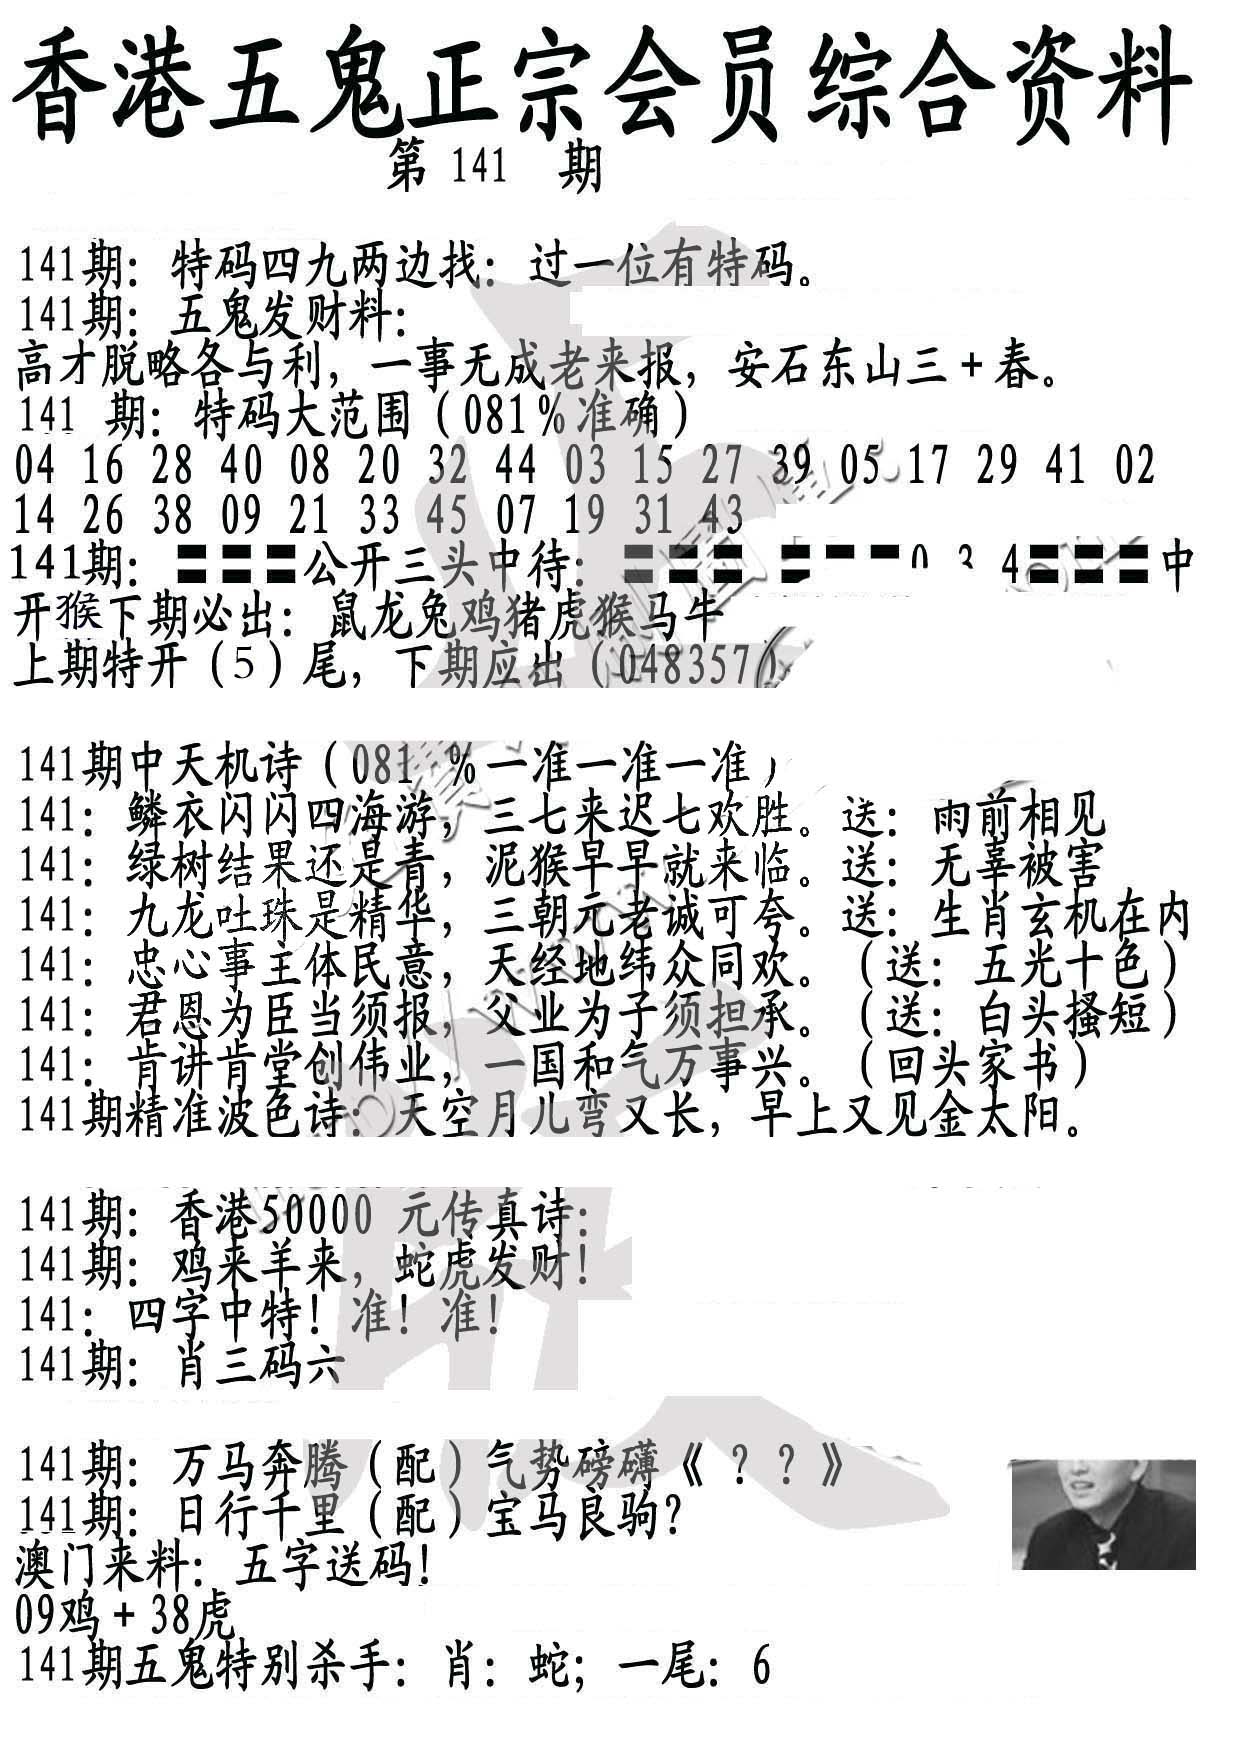 香港五鬼正宗会员综合资料
第 141 期
141期：特码四九两边找：过一位有特码。
141期：五鬼发财料：
高才脱略各与利，一事无成老来报，安石东山三+春。
141 期：特码大范围（081%准确）
04 16 28 40 08 20 32 44 03 15 27 39 05 17 29 41 02
14 26 38 09 21 33 45 07 19 31 43
141期：〓〓〓公开三头中待：〓〓〓 〓〓〓0 3 4〓〓〓中
开猴下期必出：鼠龙兔鸡猪虎猴马牛
上期特开（5）尾，下期应出（048357）
141期中天机诗（081 %一准一准一准）
141：鳞衣闪闪四海游，三七来迟七欢胜。送：雨前相见
141：绿树结果还是青，泥猴早早就来临。送：无辜被害
141：九龙吐珠是精华，三朝元老诚可夸。送：生肖玄机在内
141：忠心事主体民意，天经地纬众同欢。（送：五光十色）
141：君恩为臣当须报，父业为子须担承。（送：白头搔短）
141：肯讲肯堂创伟业，一国和气万事兴。（回头家书）
141期精准波色诗：天空月儿弯又长，早上又见金太阳。
141期：香港50000 元传真诗：
141期：鸡来羊来，蛇虎发财！
141：四字中特！准！准！
141期：肖三码六
141期：万马奔腾（配）气势磅礴《？？》
141期：日行千里（配）宝马良驹？
澳门来料：五字送码！
09鸡+38虎
141期五鬼特别杀手：肖：蛇；一尾：6